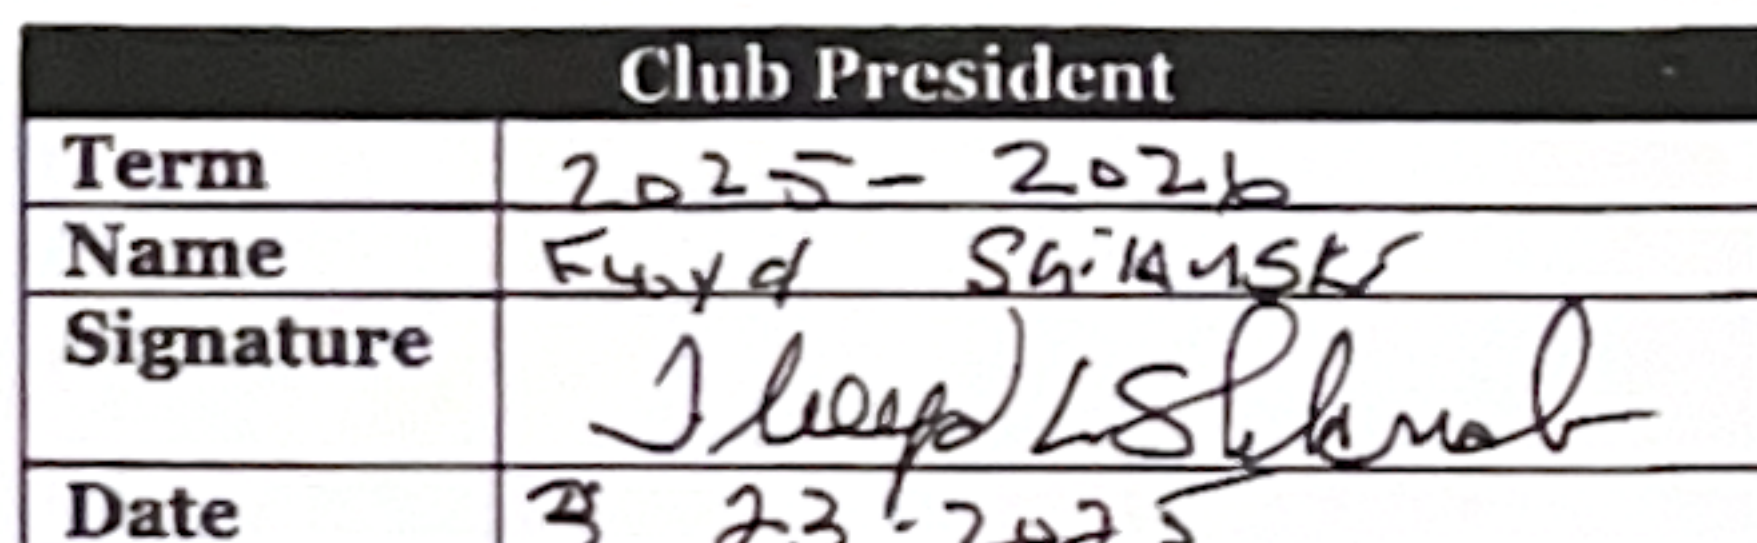 Club President
Term 2025 - 2026
Name Floyd
Signature
Date 23-2025